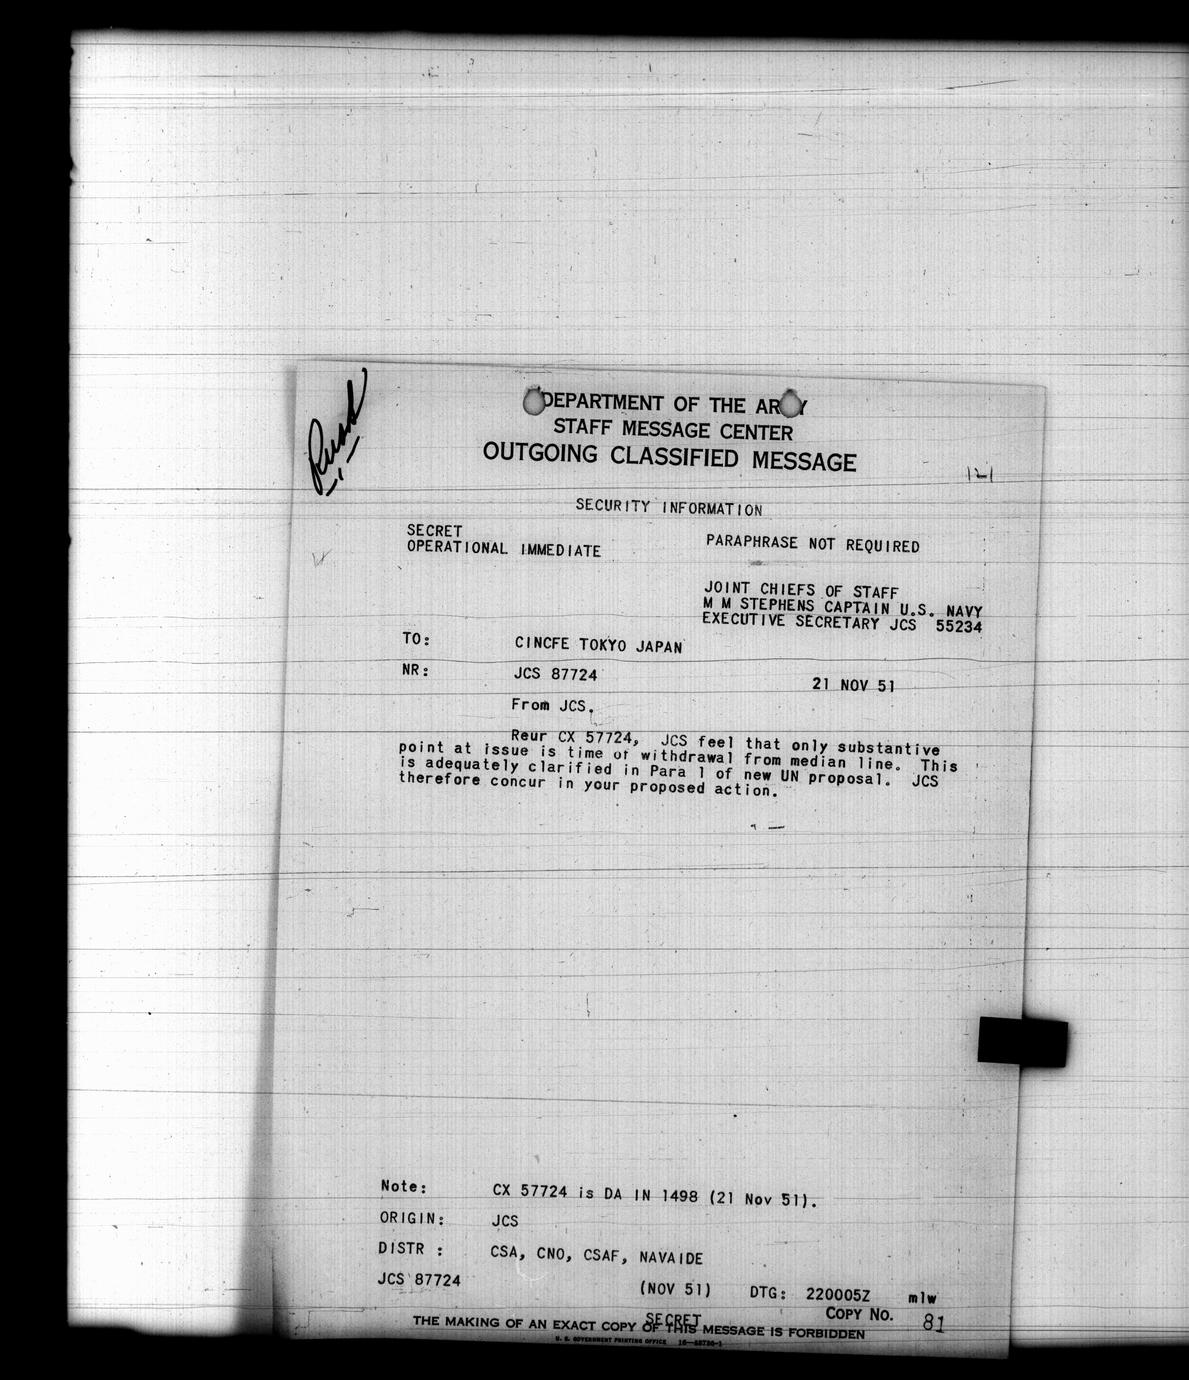 Rusk
DEPARTMENT OF THE ARMY
STAFF MESSAGE CENTER
OUTGOING CLASSIFIED MESSAGE
SECURITY INFORMATION
SECRET
OPERATIONAL IMMEDIATE
PARAPHRASE NOT REQUIRED
JOINT CHIEFS OF STAFF
M M STEPHENS CAPTAIN U.S. NAVY
EXECUTIVE SECRETARY JCS 55234
TO: CINCFE TOKYO JAPAN
NR: JCS 87724 21 NOV 51
From JCS.
Reur CX 57724, JCS feel that only substantive
point at issue is time of withdrawal from median line. This
is adequately clarified in Para 1 of new UN proposal. JCS
therefore concur in your proposed action.
Note: CX 57724 is DA IN 1498 (21 Nov 51).
ORIGIN: JCS
DISTR : CSA, CNO, CSAF, NAVAIDE
JCS 87724 (NOV 51) DTG: 220005Z mlw
SECRET COPY NO. 81
THE MAKING OF AN EXACT COPY OF THIS MESSAGE IS FORBIDDEN
U. S. GOVERNMENT PRINTING OFFICE